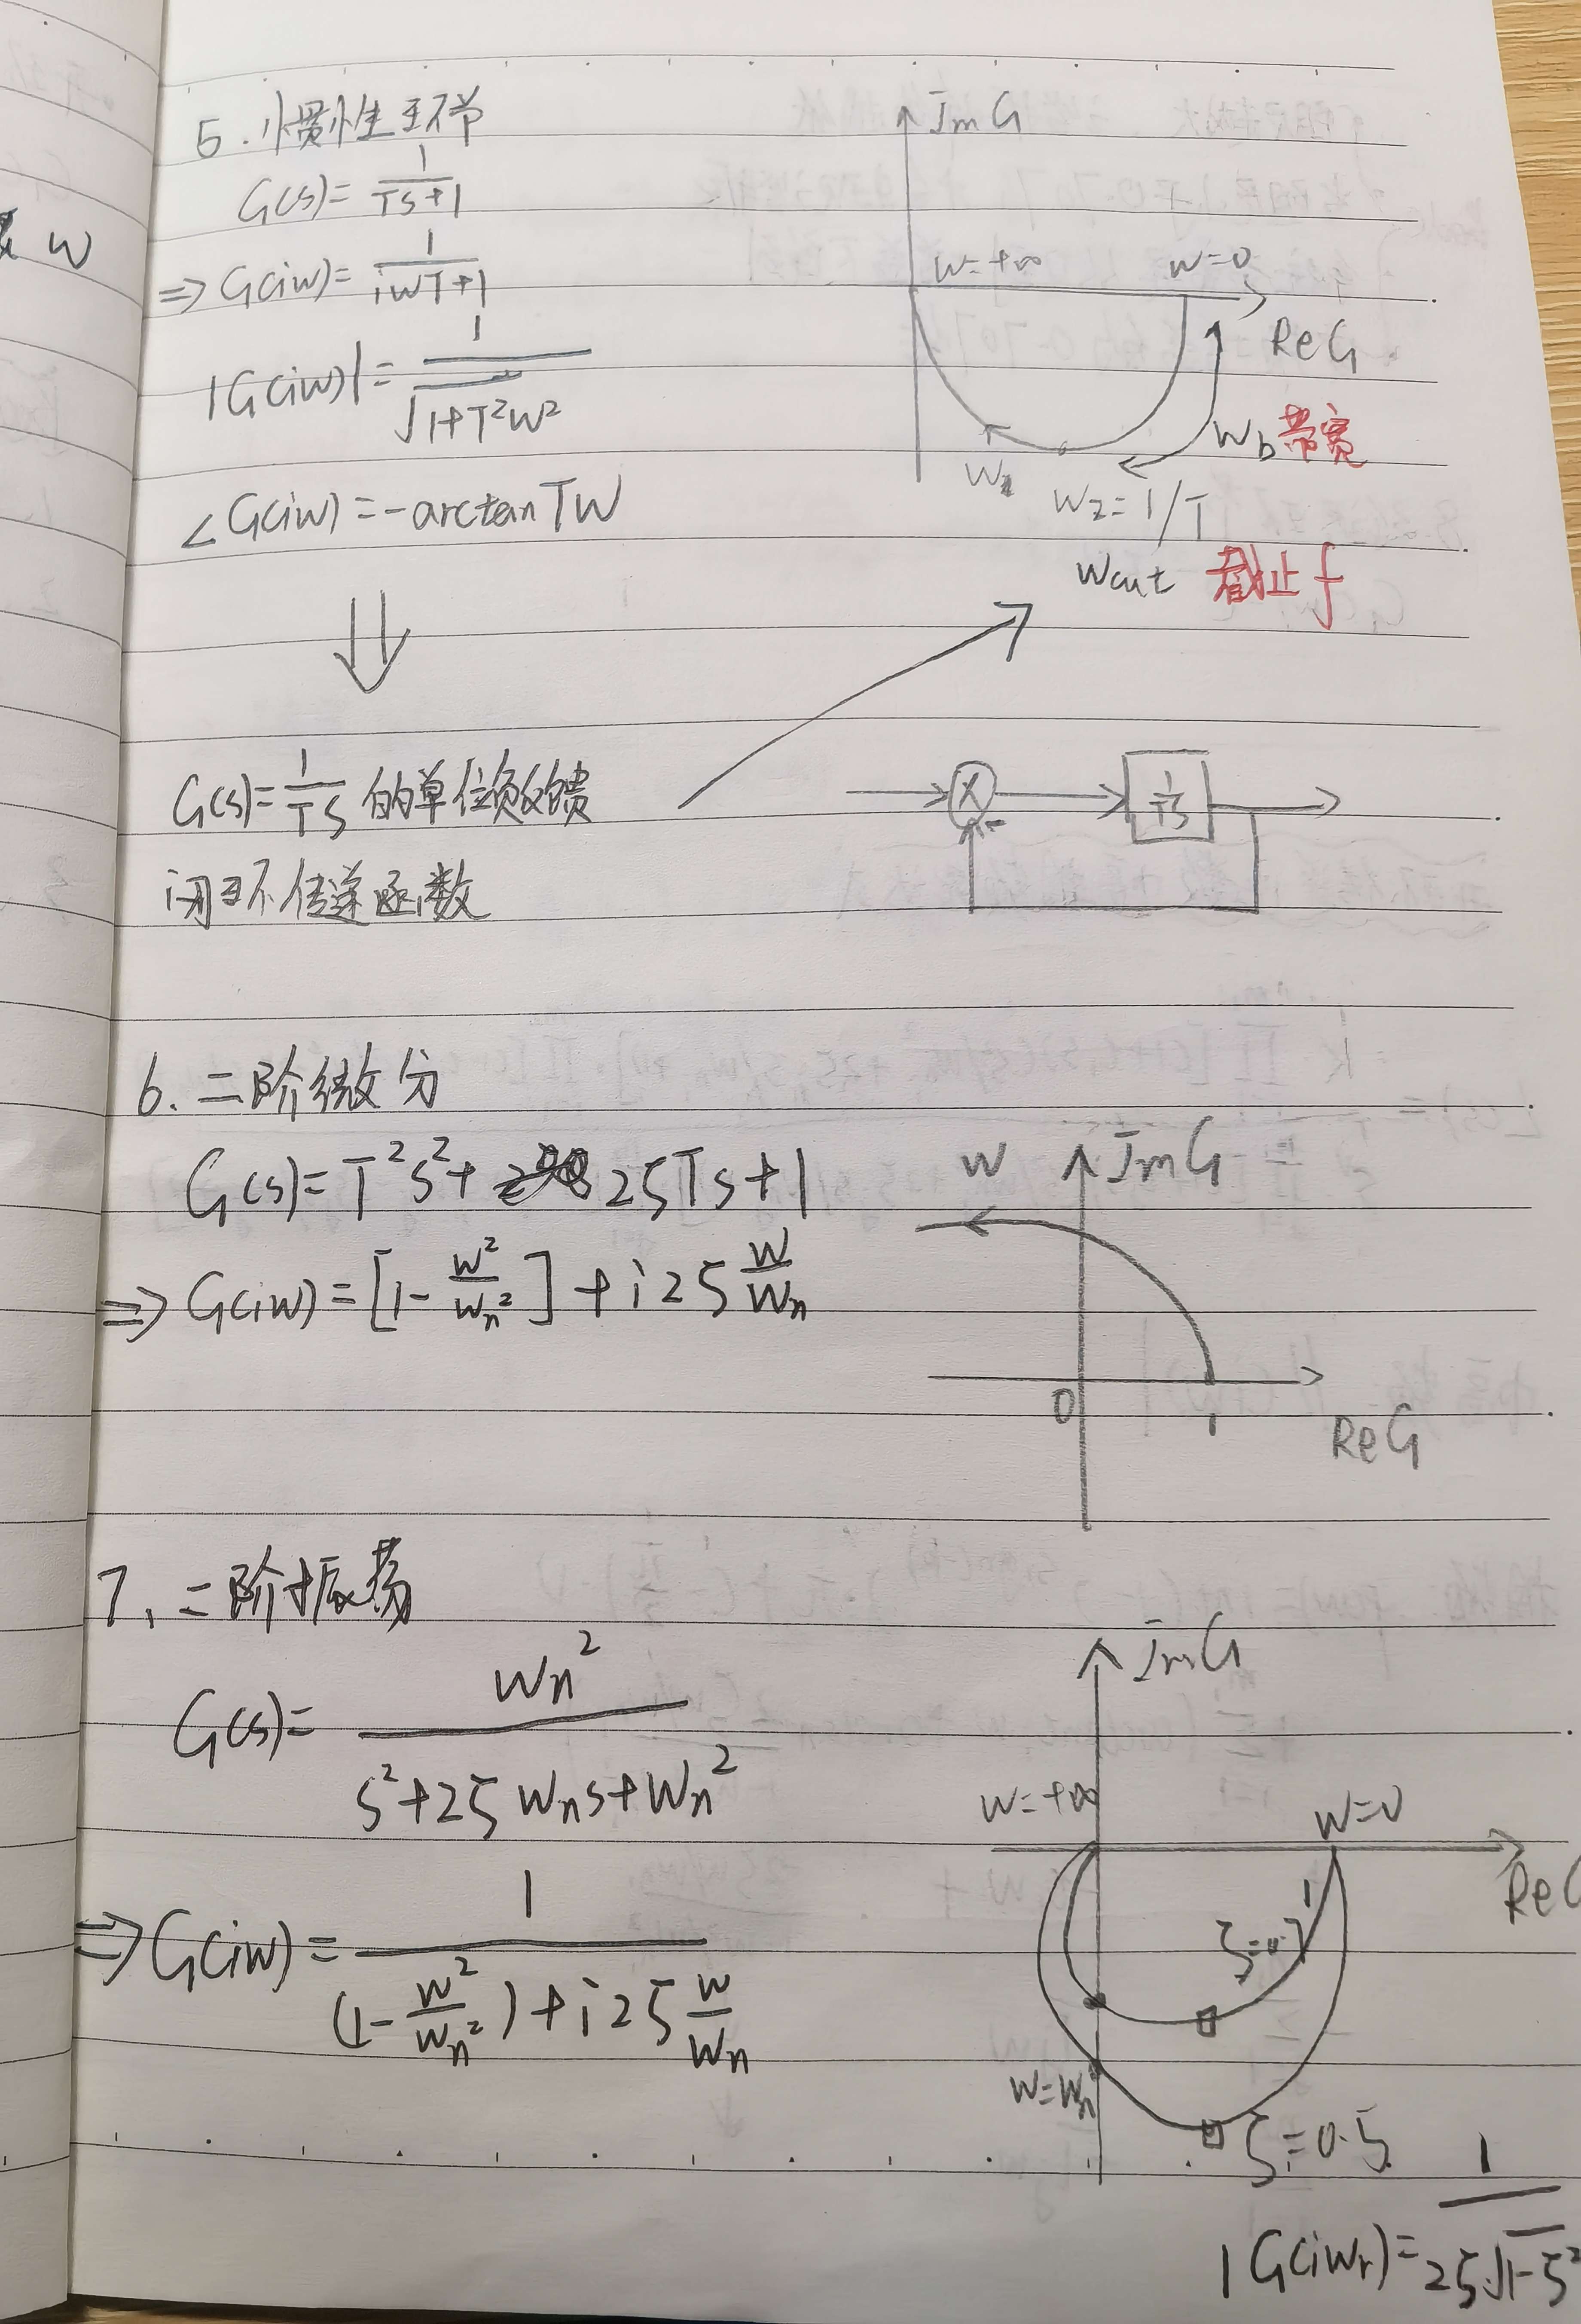 W
5. 惯性环节
G(s)=1/(Ts+1)
⇒ G(iw)=1/(iwT+1)
|G(iw)|=1/√(1+T²w²)
∠G(iw)=-arctanTw
⇓
G(s)=1/(Ts) 的单位负反馈
闭环传递函数
ImG
w=+∞ w=0
ReG
Wb带宽
W2=1/T
Wcut 截止f
X
-
1/(Ts)
6. 二阶微分
G(s)=T²s²+2ζTs+1
⇒ G(iw)=[1-w²/wn²]+i2ζw/wn
W ImG
0 1
ReG
7. 二阶振荡
G(s)=wn²/(s²+2ζwns+wn²)
⇒ G(iw)=1/((1-w²/wn²)+i2ζw/wn)
ImG
w=+∞ w=0
1
ζ=0.7
w=wn
ζ=0.5
|G(iwr)=1/(2ζ√(1-ζ²